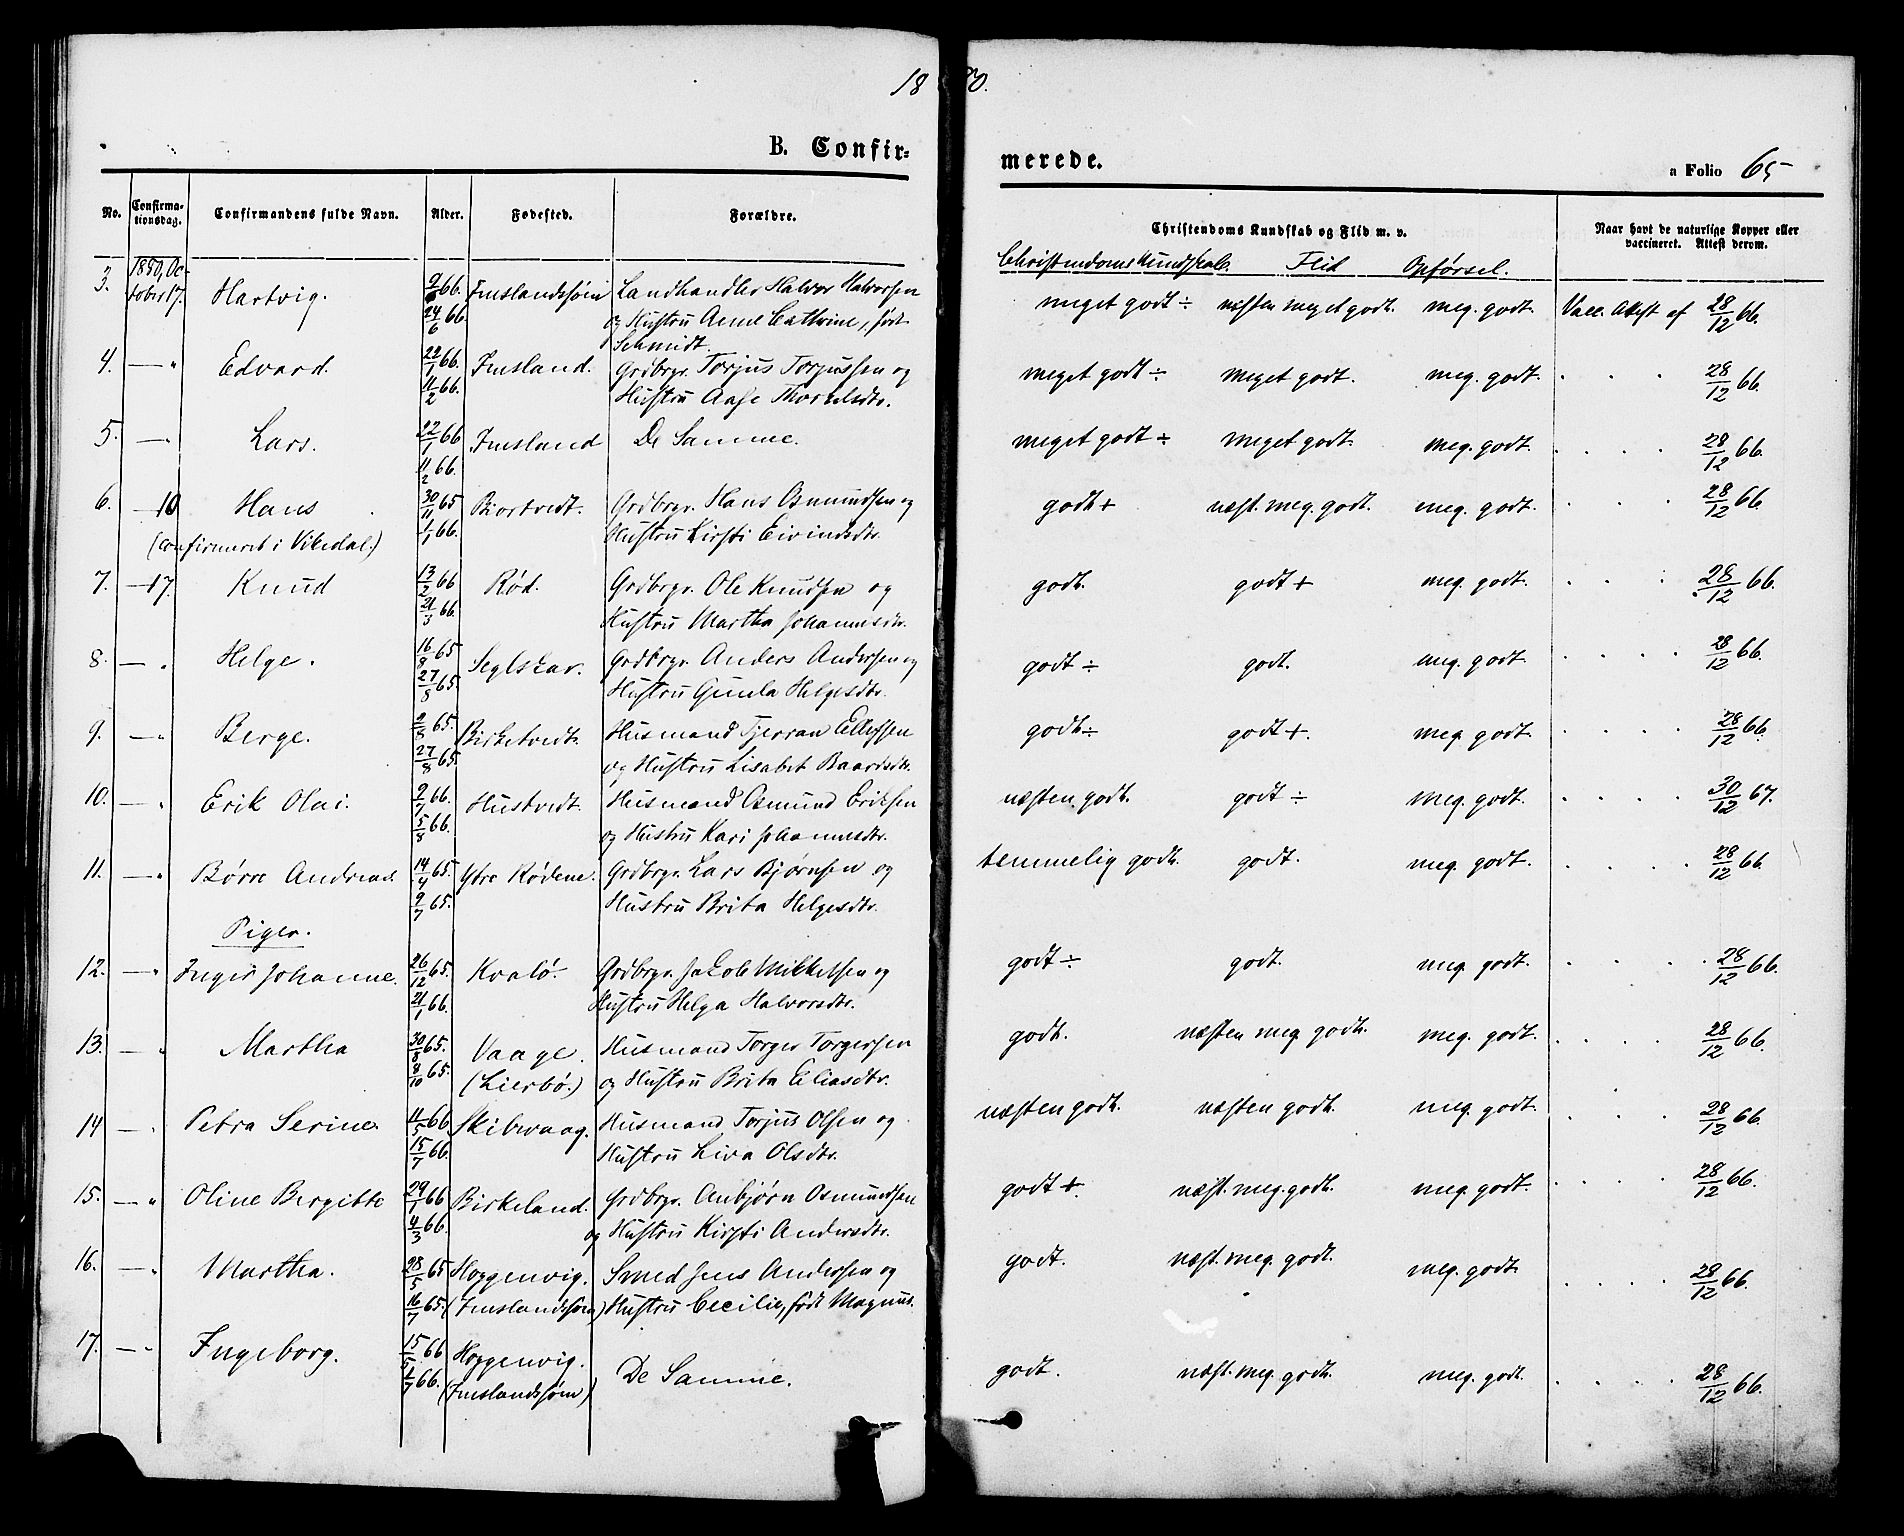 18 80.
B. Confirmerede.
a Folio 65
No. Confirmationsdag. Confirmandens fulde Navn. Alder. Fødested. Forældre. Christendoms Kundskab og Flid m. v. Naar havt de naturlige Kopper eller vaccineret. Attest derom.
Christendomskundskab. Flid Opførsel.
3. 1880, October 17. Hartvig. 9/6 66. 24/6 66. Imslandssøen Landhandler Halvor Halvorsen meget godt ÷ næsten meget godt. meg. godt. Vacc. Attest af 28/12 66.
og Hustru Anne Cathrine, født
Schmidt.
4. — " Edvard. 22/1 66. 11/2 66. Imsland. Grdbrgr. Torjus Torjussen og meget godt ÷ meget godt. meg. godt. . . . 28/12 66.
Hustru Aase Thorkelsdtr.
5. — " Lars. 22/1 66 11/2 66. Imsland De Samme. meget godt ÷ meget godt. meg. godt. . . . . 28/12 66.
6. — 10 Hans 30/11 65 1/1 66. Biortvedt. Grdbrgr. Hans Osmundsen og godt + næst. meg. godt. meg. godt. . . . 28/12 66
(Confirmeret i Vikedal.) Hustru Kirsti Eivindsdtr.
7. — 17. Knud 13/2 66 21/3 66. Rød. Grdbrgr. Ole Knudsen og godt. godt + meg. godt. . . . 28/12 66.
Hustru Martha Johannesdtr.
8. — " Helge. 16/8 65 27/8 65. Seglskar. Grdbrgr. Anders Andersen og godt ÷ godt. meg. godt. . . . . 28/12 66.
Hustru Gunla Helgesdtr.
9. — " Berge. 2/8 65. 27/8 65. Birketvedt. Husmand Tjerran Ellefsen godt ÷ godt +. meg. godt. . . . . 28/12 66.
og Hustru Lisabet Baardsdtr.
10. — " Erik Olai. 9/7 66. 5/8 66. Hustvedt. Husmand Osmund Eriksen næsten godt. godt ÷ meg. godt. . . . . 30/12 67.
og Hustru Kari Johannesdtr.
11. — " Børre Andreas. 14/4 65. 9/7 65. Ytre Rødene. Grdbrgr. Lars Bjørnsen og temmelig godt. godt. meg. godt. . . . . 28/12 66
Hustru Brita Helgesdtr.
Piger.
12. — " Inger Johanne. 26/12 65. 21/1 66. Kvalø. Grdbrgr. Jakob Mikkelsen og godt ÷ godt. meg. godt. . . . . 28/12 66.
Hustru Helga Halvorsdtr.
13. — " Martha 30/8 65. 8/10 65. Vaage. Husmand Torger Torgersen godt. næsten meg. godt. meg. godt. . . . . 28/12 66.
(Lierbø.) og Hustru Brita Eliasdtr.
14 — " Petra Serine. 11/5 66. 15/7 66. Skibevaag. Husmand Torjus Olsen og næsten godt. næsten godt. meg. godt. . . . 28/12 66.
Hustru Liva Olsdtr.
15. — " Oline Bergitte 29/1 66 4/3 66. Birkeland. Grdbrgr. Anbjørn Osmundsen godt +. næst. meg. godt. meg. godt. . . . . 28/12 66.
og Hustru Kirsti Andersdtr.
16. — " Martha. 28/5 65 16/7 65. Hoggenvig. Smed Jens Andersen og godt. næst. meg. godt. meg. godt. . . . . 28/12 66.
(Imslandssøen) Hustru Cecilie, født Magnus.
17. — " Ingeborg. 15/5 66 1/7 66. Hoggenvig. De Samme. godt. næst. meg. godt. meg. godt. . . . . 28/12 66.
(Imslandssøen)